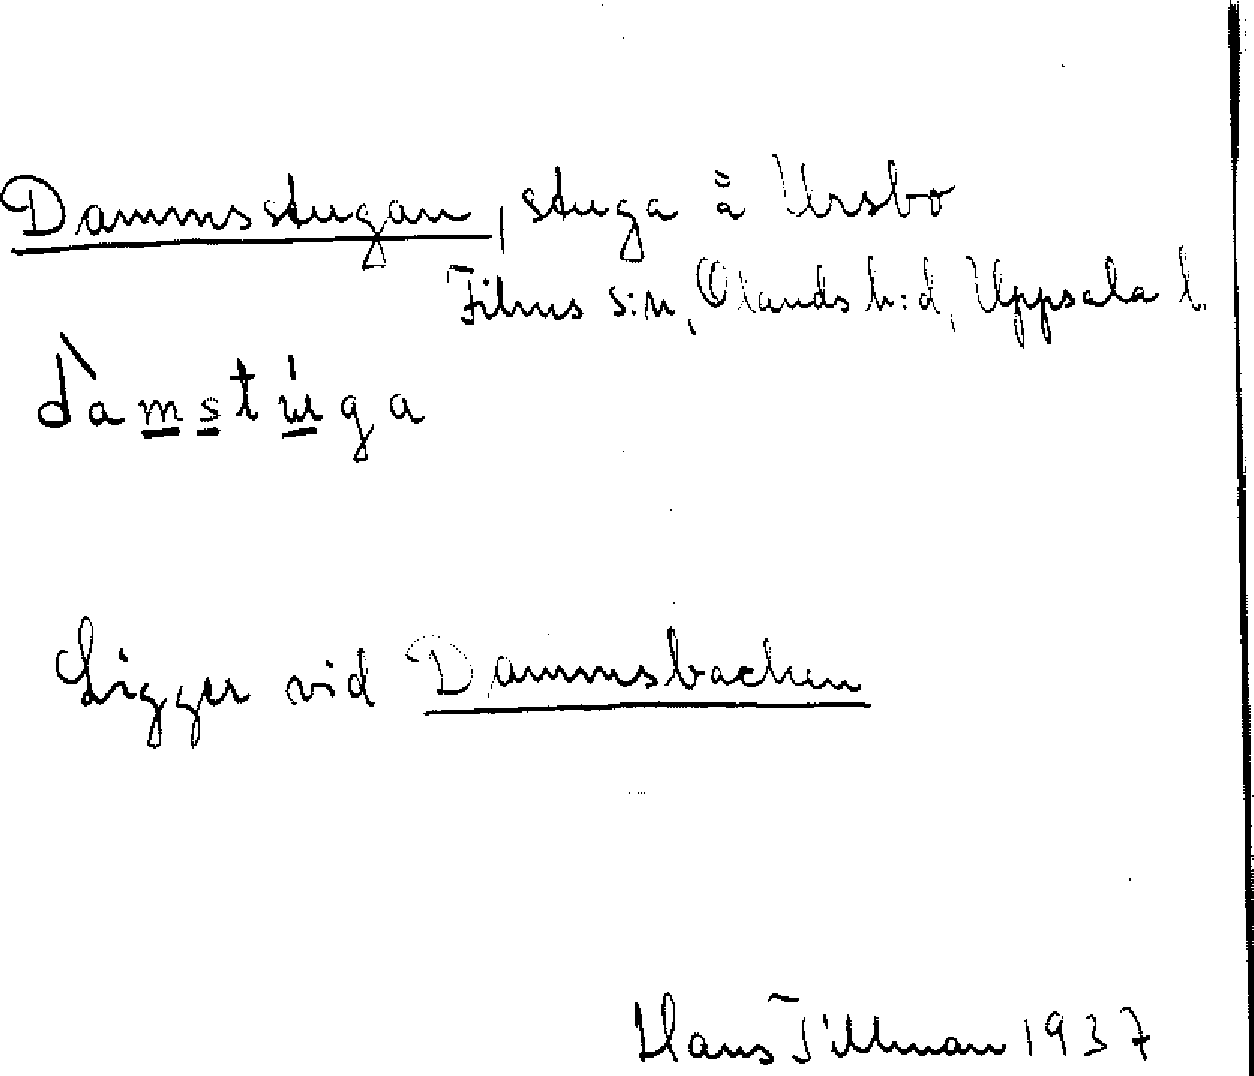 Dammsstugan, stuga å Ursbo
Films s:n, Olands h:d, Uppsala l.
dàmstúga
Ligger vid Dammsbacken
Hans Tillman 1937